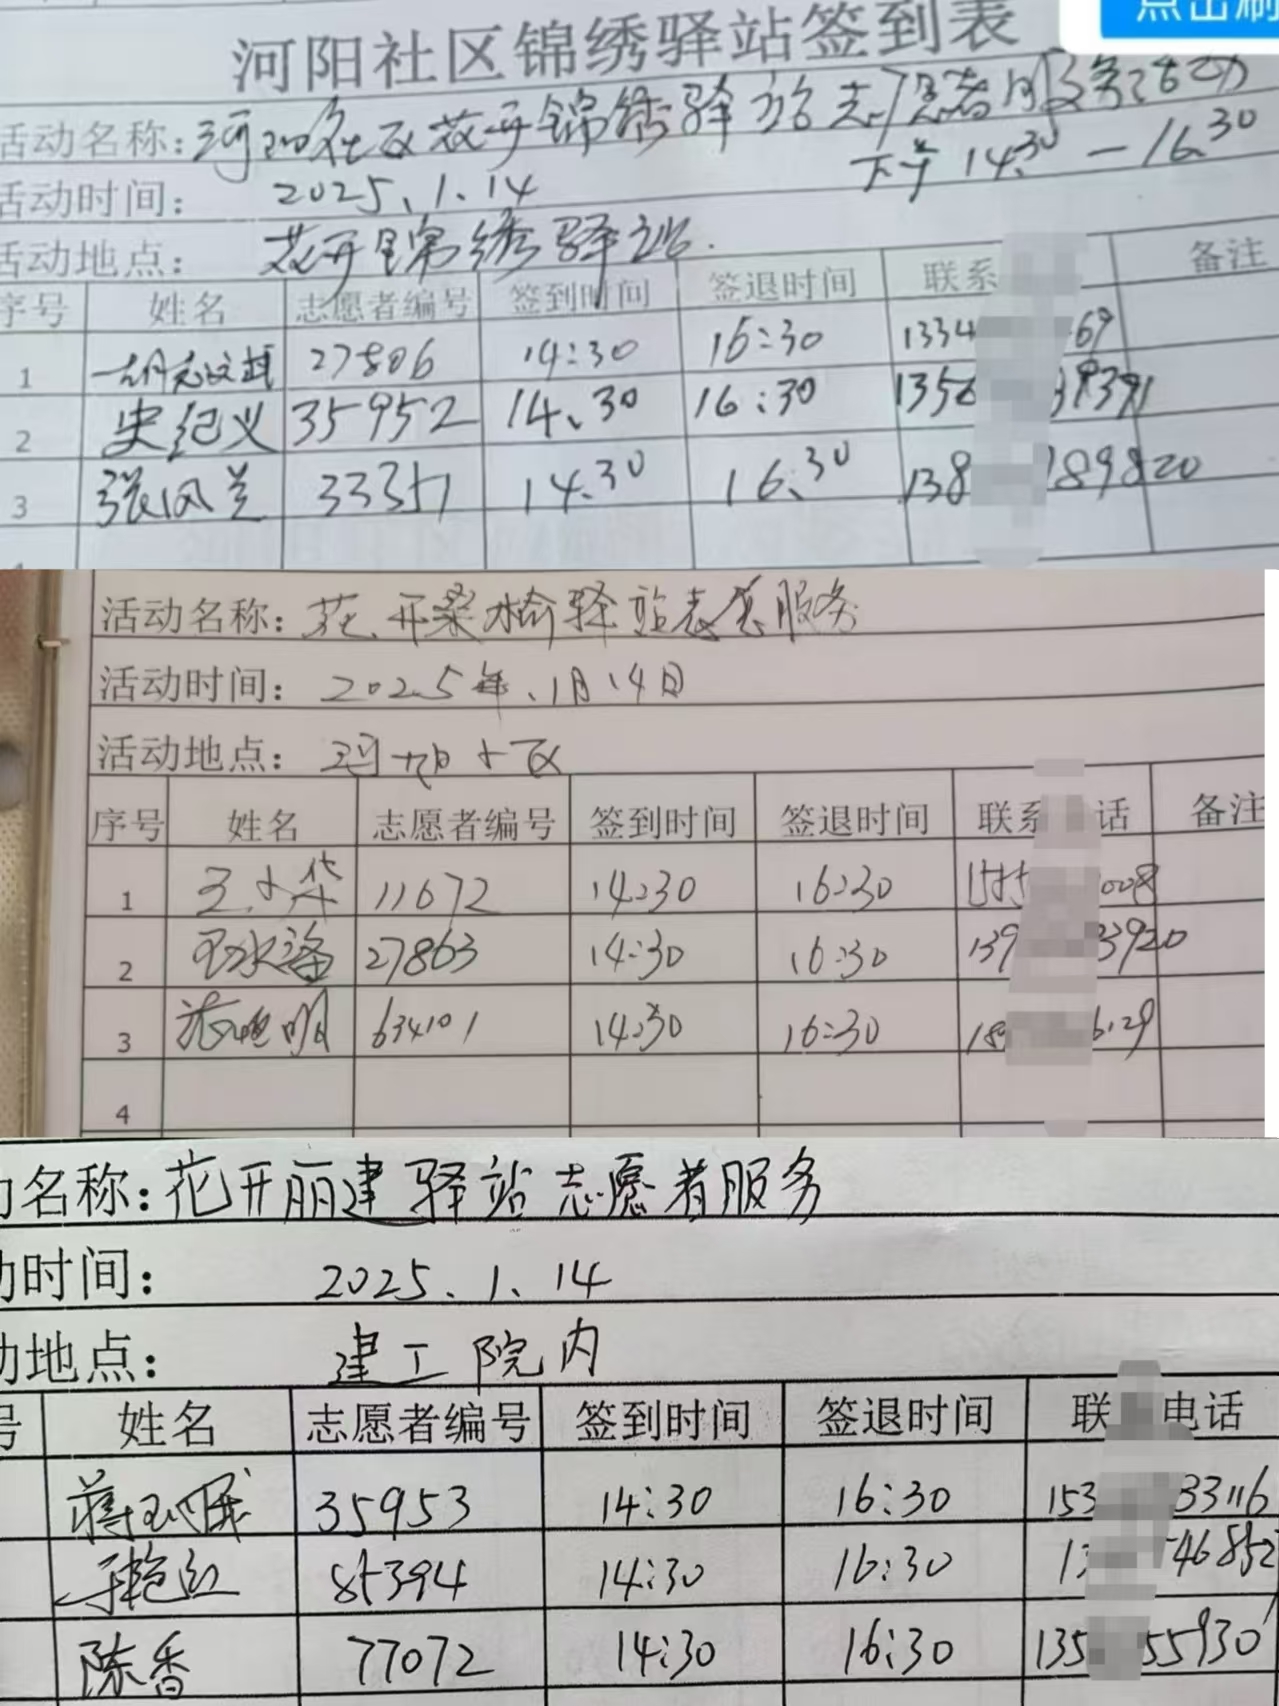 点击刷
河阳社区锦绣驿站签到表
活动名称：河阳社区花开锦绣驿站志愿者服务活动
下午 14.30 — 16.30
活动时间： 2025、1.14
活动地点： 花开锦绣驿站.
序号 姓名 志愿者编号 签到时间 签退时间 联系 备注
1 27806 14:30 16:30 1334 69
2 史纪义 35952 14.30 16:30 1356 39391
3 张凤兰 33357 14.30 16.30 138 189820
活动名称： 花开桑榆驿站志愿服务
活动时间： 2025年、1月14日
活动地点： 河阳小区
序号 姓名 志愿者编号 签到时间 签退时间 联系 话 备注
1 王小华 11672 14:30 16:30 155 008
2 27863 14:30 16:30 139 33920
3 634101 14:30 16:30 189 6129
4
动名称：花开丽建驿站志愿者服务
动时间： 2025.1.14
动地点： 建工院内
号 姓名 志愿者编号 签到时间 签退时间 联 电话
35953 14:30 16:30 153 33116
于艳红 85394 14:30 16:30 13 546852
陈香 77072 14:30 16:30 135 55930